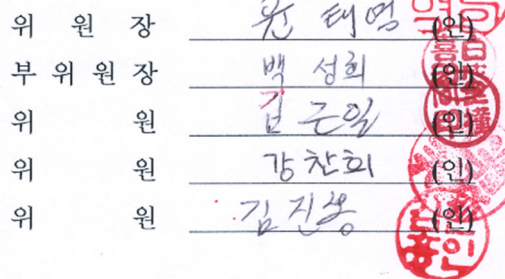 위 원 장 윤 태 영 (인)
부 위 원 장 백 성희 (인)
위 원 김 근일 (인)
위 원 강찬희 (인)
위 원 김진봉 (인)